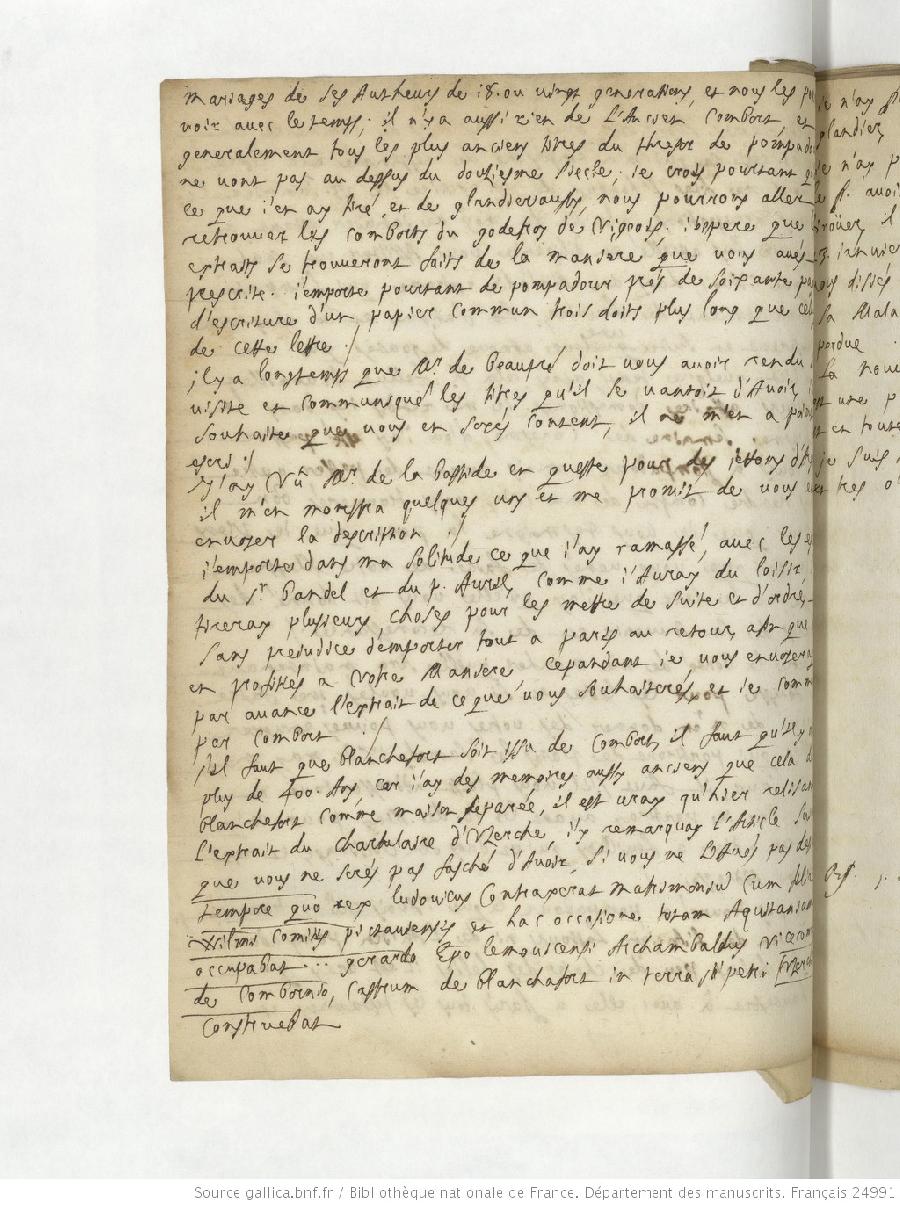 mariages de ses Autheurs de 18. ou vingt generations, et nous les
voir avec le temps, il n'y a aussi rien de L'Ancien Combort, et
generalement tous les plus anciens titres du thresor de pompad
ne vont pas au dessus du douziesme siecle; ie crois pourtant q
ce que i'en ay tiré, et de glandier aussy, nous pourrons aller
retrouver les Comborts du godefroy de Vigeois. i'espere que
extraits se trouveront faits de la maniere que vous avés
prescrite. i'emporte pourtant de pompadour prés de soixante pa
d'escriture d'un papier commun trois doits plus long que cel
de cette lettre ./
il y a longtemps que Mr. de Beaupré doit vous avoir rendu
visite et communiqué les titres qu'il se vantoit d'Avoir,
souhaite que vous en soyés content, il ne m'en a point
escri ./
J'ay Vû Mr. de la Bastide en queste pour des jettons d'
il m'en monstra quelques uns et me promit de vous e
envoyer la description ./
i'emporte dans ma solitude ce que i'ay ramassé, avec les e
du Sr Bandel et du p. Avril, comme i'Auray du loisir
tireray plusieurs choses pour les mettre de suite et d'ordre,
sans prejudice d'emporter tout a paris au retour, afin que
en profités a vostre Maniere, cependant ie vous envoyeray
par avance l'extrait de ce que vous souhaiterés, et ie comm
per Combort ./
s'il faut que Blanchefort soit issu de Combort, il faut qu'il y
plus de 400. Ans car i'ay des memoires aussy anciens que cela d
Blanchefort comme maison separée, il est vray qu'hier relisant
L'extrait du Chartulaire d'Uzerche, i'y remarquay l'Article
que vous ne serés pas fasché d'Avoir, si vous ne L'Avés pas des
tempore quo rex ludovicus Contraxerat matrimoniu cum filia
Willmi Comitis pictaviensis et hac occasione totam Aquitaniam
occupabat ... gerardo Epo lemovicensi Archambaldus vicecom
de Combornio, Castrum de Blanchefort in terra sti petri Uzerch
Construebat